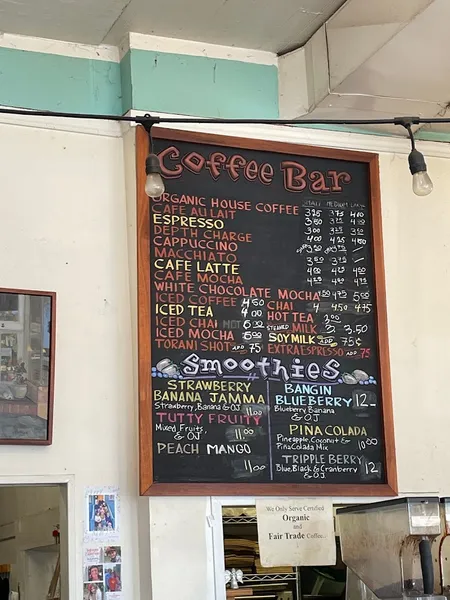 Coffee Bar
SMALL MEDIUM LARGE
ORGANIC HOUSE COFFEE 3.25 3.75 4.10
CAFE AU LAIT 3.50
ESPRESSO 3.00
DEPTH CHARGE 4.00 4.25 4.50
CAPPUCCINO
MACCHIATO 3.50
CAFE LATTE
CAFE MOCHA
WHITE CHOCOLATE MOCHA 4.75 5.00
ICED COFFEE 4.50 CHAI 4 4.50 4.75
ICED TEA 4.00 HOT TEA 3.00
ICED CHAI STEAMED MILK 3.50
ICED MOCHA SOY MILK ADD 75¢
TORANI SHOT ADD .75 EXTRA ESPRESSO ADD .75
Smoothies
STRAWBERRY
BANANA JAMMA
Strawberry, Banana & OJ 11.00
TUTTY FRUITY
Mixed Fruits,
& OJ 11.00
PEACH MANGO
11.00
BANGIN
BLUEBERRY 12-
Blueberry Banana
& OJ
PINA COLADA
Pineapple, Coconut &
Pina Colada Mix 10.00
TRIPPLE BERRY
Blue, Black & Cranberry
& OJ 12
We Only Serve Certified
Organic
and
Fair Trade Coffee